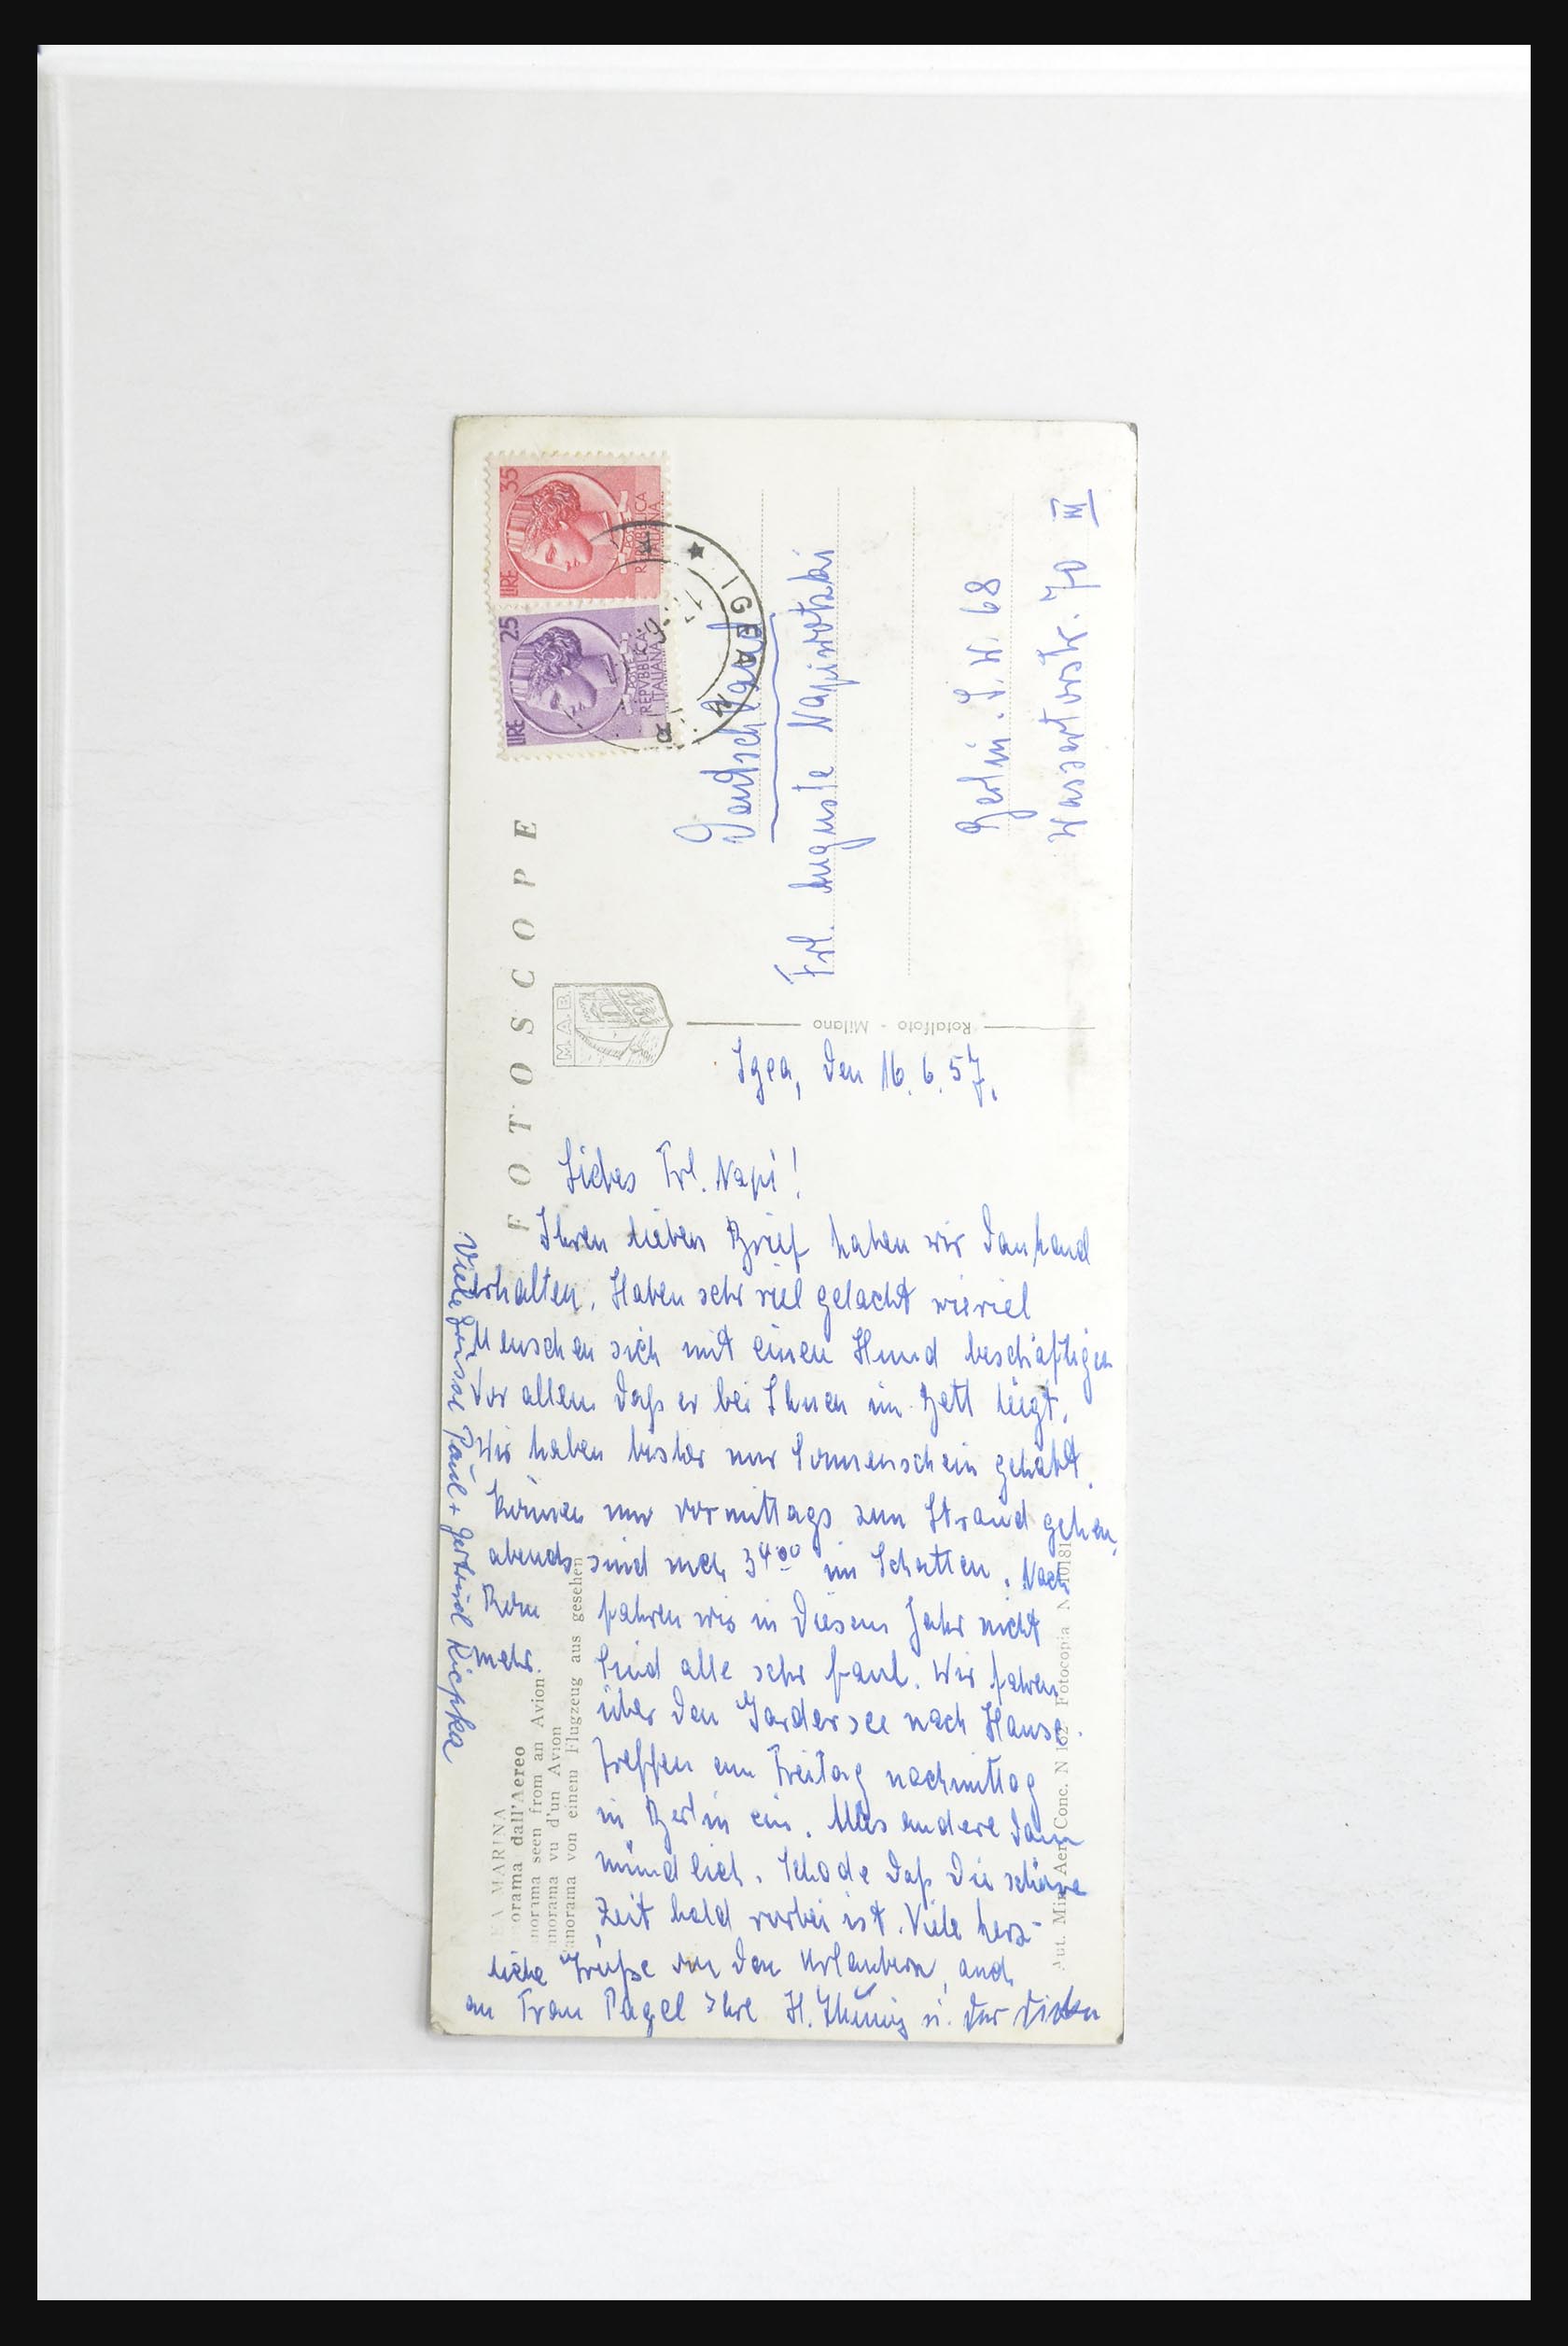 FOTOSCOPE
LIRE 35
POSTE
REPVBBLICA
ITALIANA
LIRE 25
POSTE
REPVBBLICA
ITALIANA
IGEA M
Deutschland
Frl. Auguste Napirotzki
Berlin. S.W. 68
Wassertorstr. 70 III
M.A.B.
Rotalfoto - Milano
Igea, den 16.6.57.
Liebes Frl. Napi!
Ihren lieben Brief haben wir dankend
erhalten. Haben sehr viel gelacht wieviel
Menschen sich mit einen Hund beschäftigen
Vor allem daß er bei Ihnen im Bett liegt.
Wir haben bisher nur Sonnenschein gehabt.
können nur vormittags zum Strand gehen,
abends sind noch 34°° im Schatten. Nach
Rom fahren wir in diesem Jahr nicht
mehr. Sind alle sehr faul. Wir fahren
über den Gardersee nach Hause.
treffen am Freitag nachmittag
in Berlin ein. Alles andere dann
mündlich. Schade daß die schöne
Zeit bald vorbei ist. Viele herz-
liche Grüße von den Urlaubern, auch
an Frau Pagel Ihre H. u. der
Viele Grüsse Paul + Gertrud Kiepka
EA MARINA
orama dall'Aereo
norama seen from an Avion
norama vu d'un Avion
anorama von einem Flugzeug aus gesehen
Aut. Min. Aer. Conc. N 162 Fotocopia N